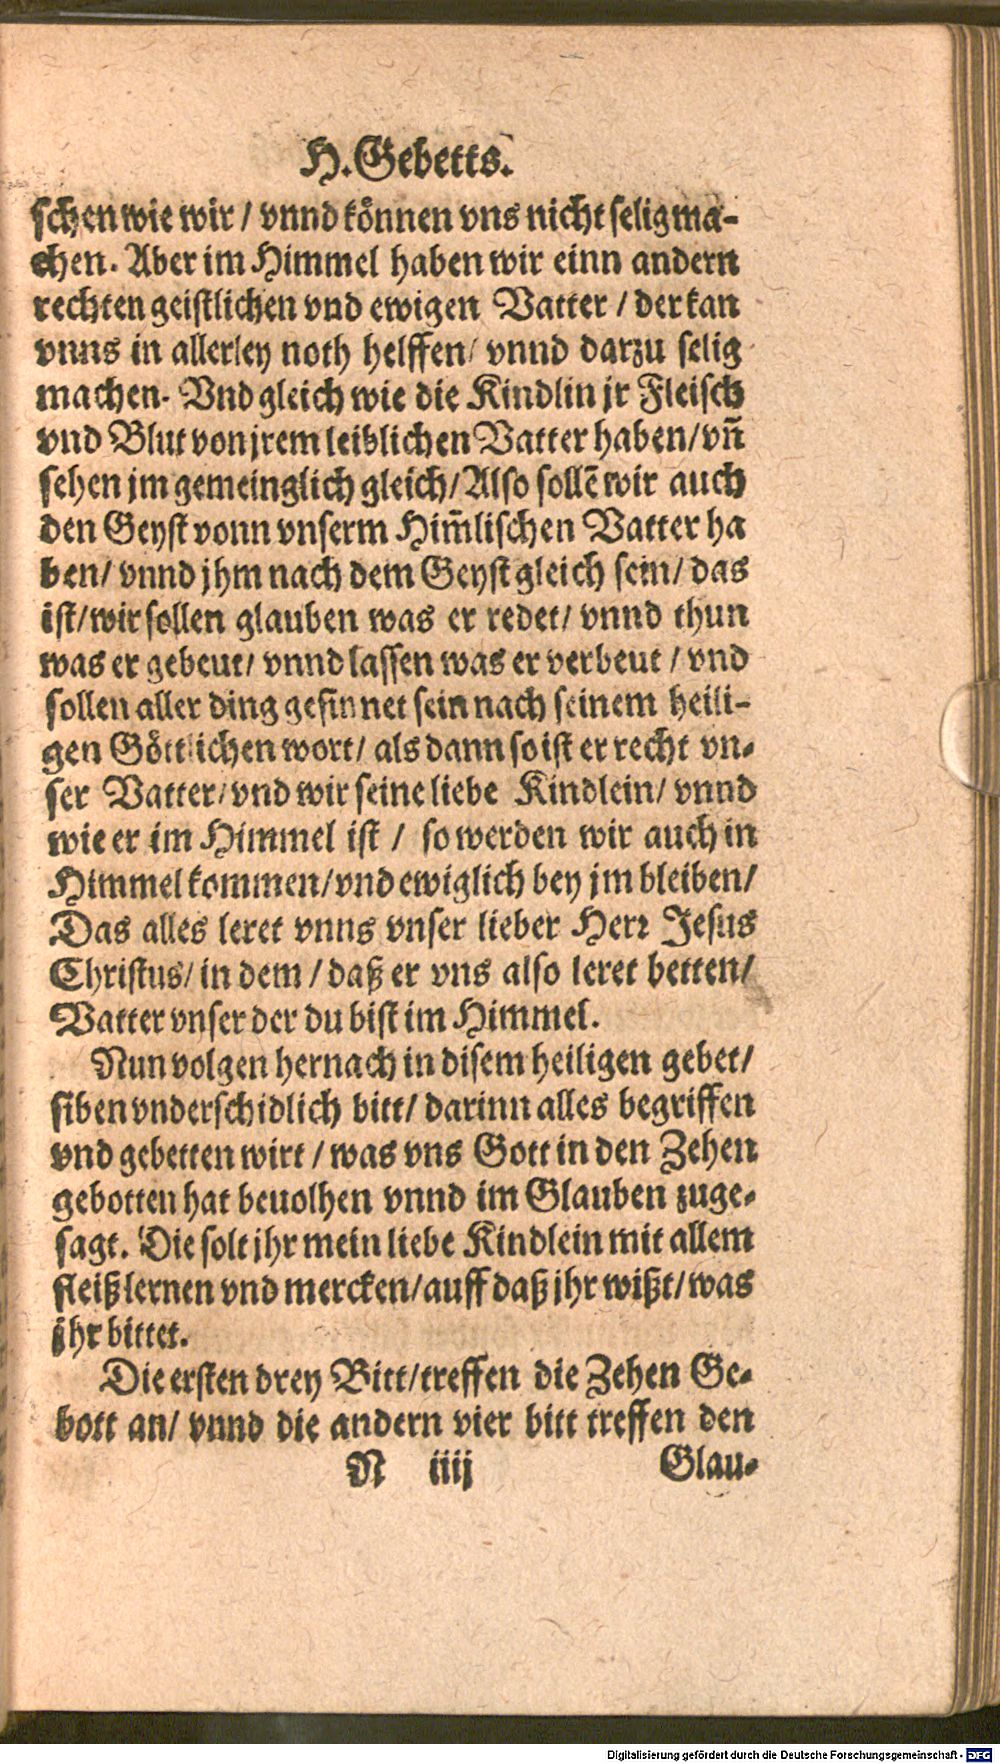 H. Gebetts.
schen wie wir / vnnd können vns nicht selig ma-
chen. Aber im Himmel haben wir einn andern
rechten geistlichen vnd ewigen Vatter / der kan
vnns in allerley noth helffen / vnnd darzu selig
machen. Vnd gleich wie die Kindlin jr Fleisch
vnd Blut von jrem leiblichen Vatter haben / vñ
sehen jm gemeinglich gleich / Also sollẽ wir auch
den Geyst vonn vnserm Him̃lischen Vatter ha
ben / vnnd jhm nach dem Geyst gleich sein / das
ist / wir sollen glauben was er redet / vnnd thun
was er gebeut / vnnd lassen was er verbeut / vnd
sollen aller ding gesinnet sein nach seinem heili-
gen Göttlichen wort / als dann so ist er recht vn-
ser Vatter / vnd wir seine liebe Kindlein / vnnd
wie er im Himmel ist / so werden wir auch in
Himmel kommen / vnd ewiglich bey jm bleiben /
Das alles leret vnns vnser lieber Herr Jesus
Christus / in dem / daß er vns also leret betten /
Vatter vnser der du bist im Himmel.
Nun volgen hernach in disem heiligen gebet /
siben vnderschidlich bitt / darinn alles begriffen
vnd gebetten wirt / was vns Gott in den Zehen
gebotten hat beuolhen vnnd im Glauben zuge-
sagt. Die solt jhr mein liebe Kindlein mit allem
fleiß lernen vnd mercken / auff daß jhr wißt / was
jhr bittet.
Die ersten drey Bitt / treffen die Zehen Ge-
bott an / vnnd die andern vier bitt treffen den
N iiij Glau-
Digitalisierung gefördert durch die Deutsche Forschungsgemeinschaft - DFG